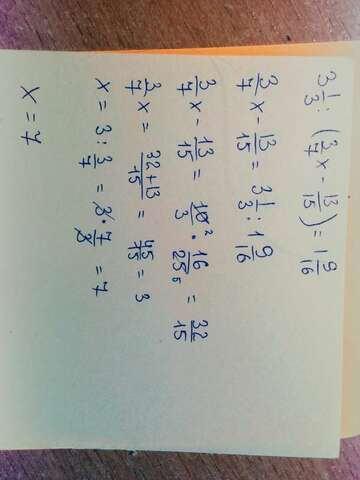 3 1/3 : (3/7 x - 13/15) = 1 9/16
3/7 x - 13/15 = 3 1/3 : 1 9/16
3/7 x - 13/15 = 10²/3 · 16/25₅ = 32/15
3/7 x = 32+13/15 = 45/15 = 3
x = 3 : 3/7 = 3 · 7/3 = 7
x = 7